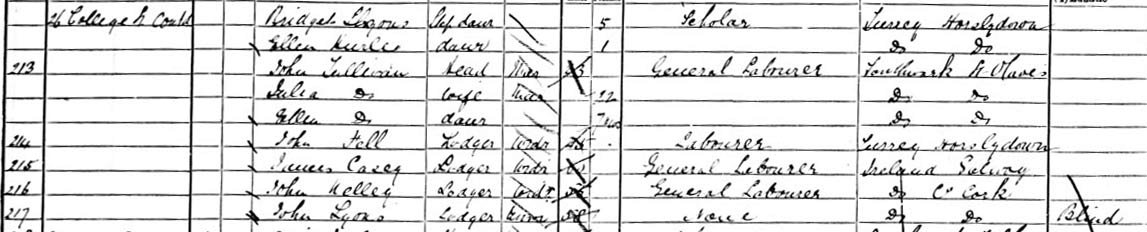 26 College St Court Bridget Lyons Step daur 5 Scholar Surrey Horslydown
Ellen Hurley daur 1 Do Do
213 John Sullivan Head Mar General Labourer Southwark St Olaves
Julia Do wife Mar 22 Do Do
Ellen Do daur 7 mo Do Do
214 John Fell Lodger Widr Labourer Surrey Horslydown
215 James Casey Lodger Widr General Labourer Ireland Galway
216 John Kelley Lodger Widr General Labourer Do Co Cork
217 John Lyons Lodger Unm None Do Do Blind